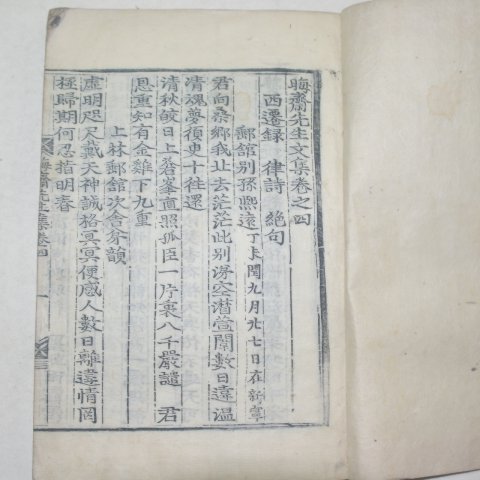 晦齋先生文集卷之四
西遷錄 律詩 絶句
郵館別孫熙遠丁未閏九月卄七日在新寧
君向桑鄕我北去茫茫此別涕空潸萱闈數日違溫
凊魂夢須更十往還
淸秋皎日上蒼峯直照孤臣一片衷八千嚴譴 君
恩重知有金雞下九重
上林郵館次舍弟韻
虛明咫尺戴天神誠格冥冥便感人數日離違情罔
極歸期何忍指明春
晦齋先生集卷四